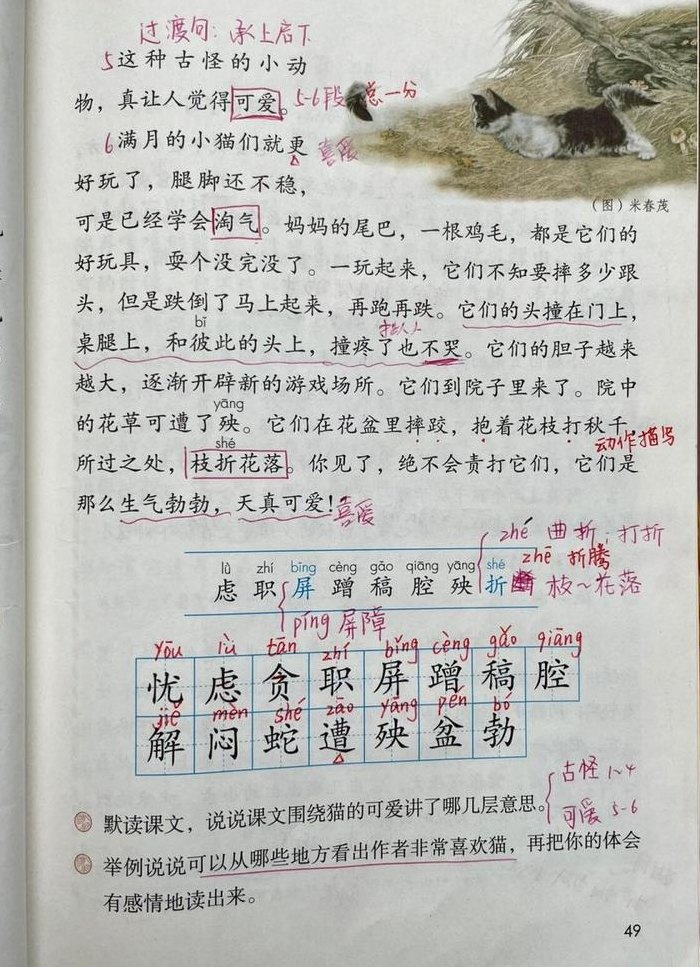 过渡句：承上启下
5这种古怪的小动
物，真让人觉得可爱。5-6段 总一分
6满月的小猫们就更 喜爱
好玩了，腿脚还不稳，
（图）米春茂
可是已经学会淘气。妈妈的尾巴，一根鸡毛，都是它们的
好玩具，耍个没完没了。一玩起来，它们不知要摔多少跟
头，但是跌倒了马上起来，再跑再跌。它们的头撞在门上，
bǐ
桌腿上，和彼此的头上，撞疼了也不哭。它们的胆子越来
越大，逐渐开辟新的游戏场所。它们到院子里来了。院中
yāng
的花草可遭了殃。它们在花盆里摔跤，抱着花枝打秋千，
动作描写
shé
所过之处，枝折花落。你见了，绝不会责打它们，它们是
那么生气勃勃，天真可爱！喜爱
zhé 曲折；打折
zhē 折腾
lǜ zhí bǐng cèng gǎo qiāng yāng shé
虑 职 屏 蹭 稿 腔 殃 折 枝~花落
píng 屏障
yōu lǜ tān zhí bǐng cèng gǎo qiāng
忧 虑 贪 职 屏 蹭 稿 腔
jiě mèn shé zāo yāng pén bó
解 闷 蛇 遭 殃 盆 勃
古怪 1~4
默读课文，说说课文围绕猫的可爱讲了哪几层意思。
可爱 5-6
举例说说可以从哪些地方看出作者非常喜欢猫，再把你的体会
有感情地读出来。
49